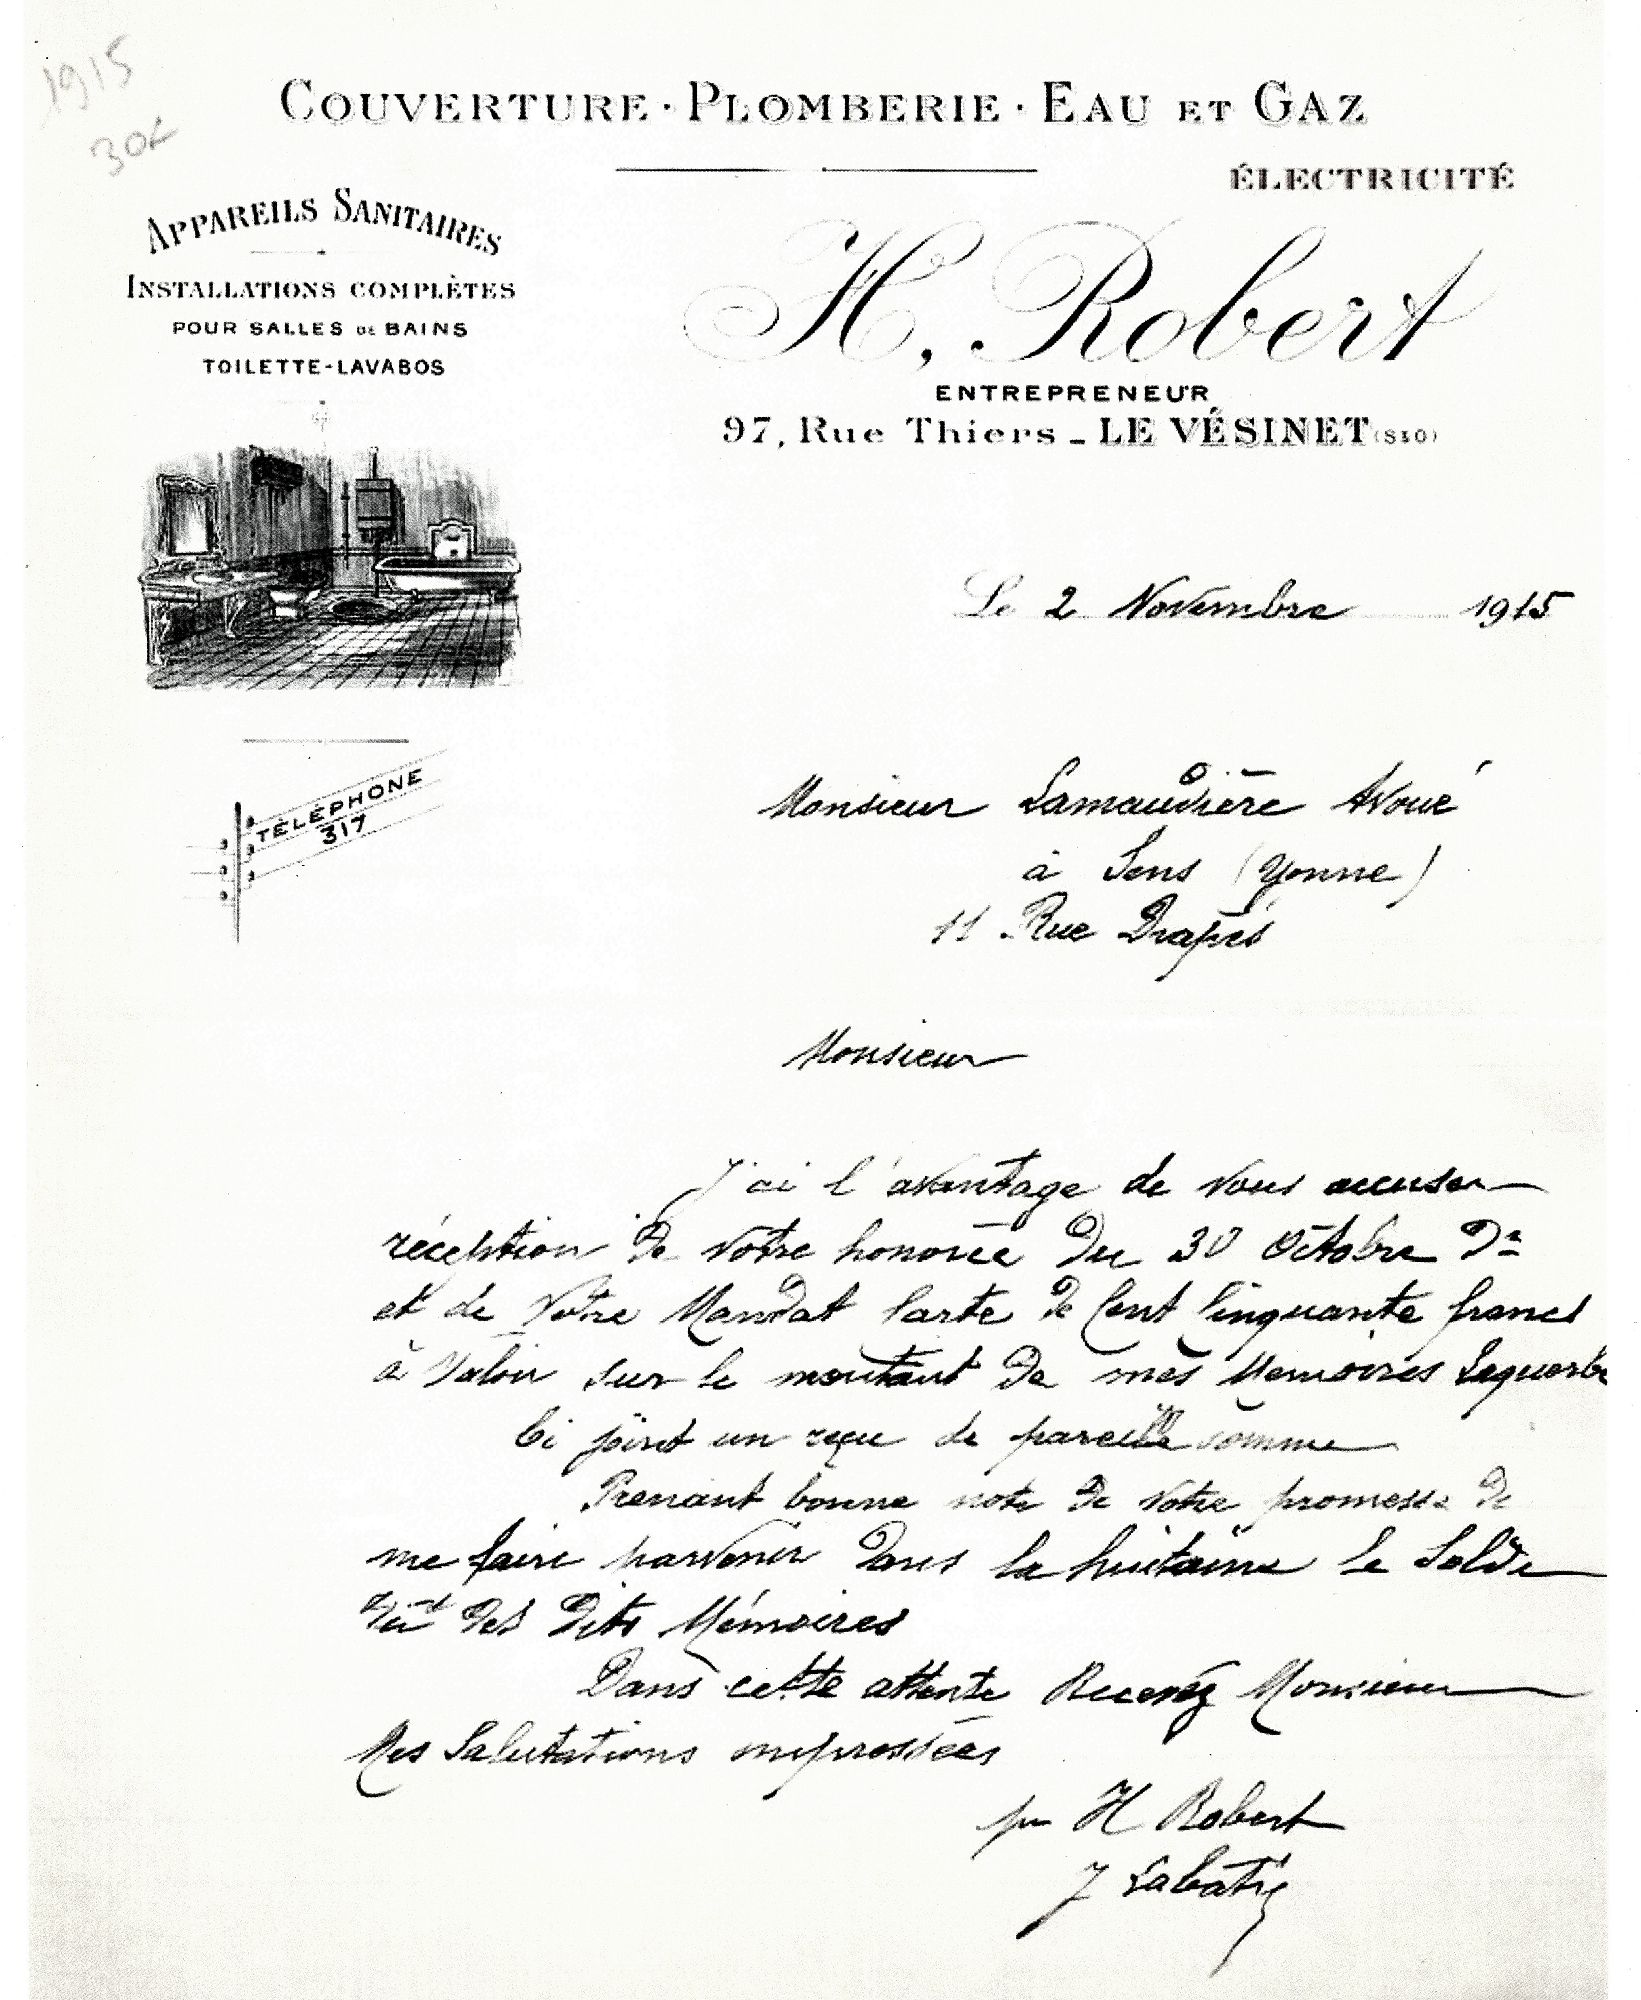 1915
COUVERTURE · PLOMBERIE · EAU ET GAZ
ÉLECTRICITÉ
APPAREILS SANITAIRES
INSTALLATIONS COMPLÈTES
POUR SALLES DE BAINS
TOILETTE-LAVABOS
H. Robert
ENTREPRENEUR
97, Rue Thiers - LE VÉSINET (S&O)
Le 2 Novembre 1915
TÉLÉPHONE
317
Monsieur Lamaudière Avoué
à Sens (Yonne)
11 Rue Drapés
Monsieur
J'ai l'avantage de vous accuser
réception de votre honorée du 30 Octobre Dr
et de Votre Mandat Carte de Cent Cinquante francs
à Valoir sur le montant de mes Memoires
Ci joint un reçu de pareille somme
Prenant bonne note de votre promesse de
me faire parvenir dans la huitaine le Solde
des dits Mémoires
Dans cette attente Recevez Monsieur
Mes Salutations empressées
pr H Robert
J